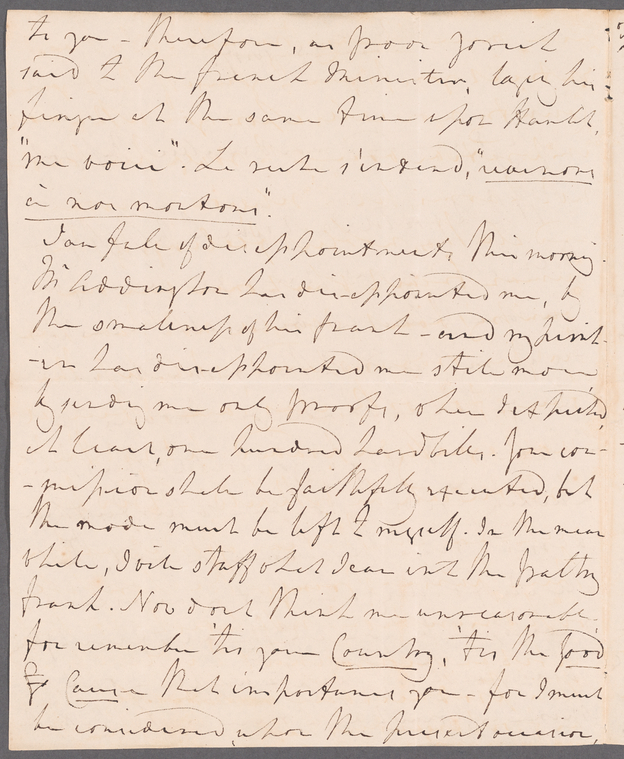 to you - therefore, as poor Yorick
said to the french Minister, laying his
finger at the same time upon Hamlet,
"me voici". Le reste s'entend, "revenons
à nos moutons".
I am full of disappointments this morning.
Mr Addington has disappointed me, by
the smallness of his frank - and my print-
-er has disappointed me still more,
by sending me only proofs, when I expected,
at least, one hundred handbills. Your com-
-mission shall be faithfully executed, but
the mode must be left to myself. In the mean
while, I will stuff what I can into the paltry
frank. Now don't think me unreasonable -
for remember 'tis your Country, 'tis the Good
Cause that importunes you - for I must
be considered, upon the present occasion,